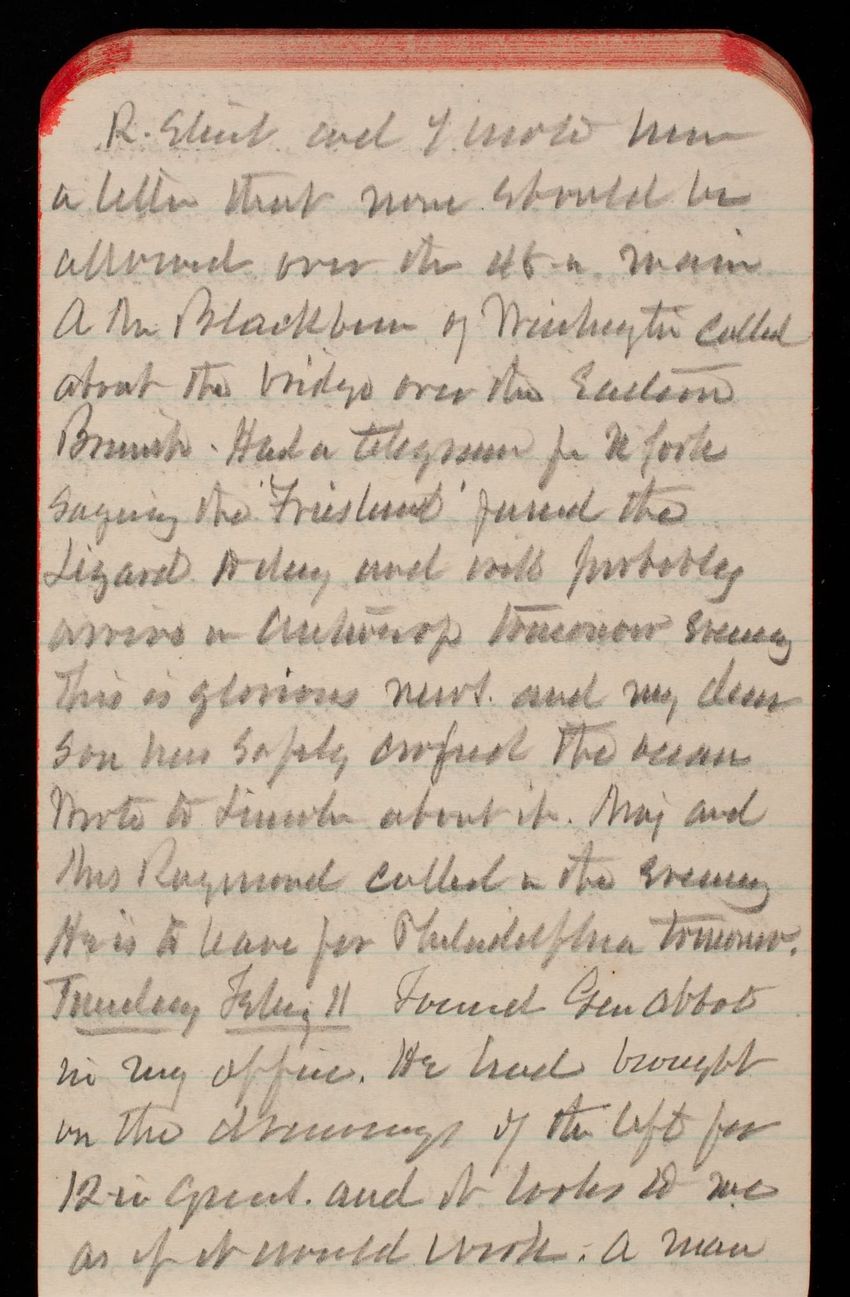 R. Elliot and I wrote him
a letter that none should be
allowed over the 48 in main
A Mr Blackburn of Washington called
about the bridge over the Eastern
Branch. Had a telegram fr N York
saying the 'Friesland' passed the
Lizard today and will probably
arrive in Antwerp tomorrow evening
This is glorious news. and my dear
son has safely crossed the ocean
Wrote to Lincoln about it. Maj and
Mrs Raymond called in the evening
He is to leave for Philadelphia tomorrow.
Tuesday Feby 11 Found Gen Abbot
in my office. He had brought
on the drawings of the lift for
12 in guns. and it looks to me
as if it would work. A man